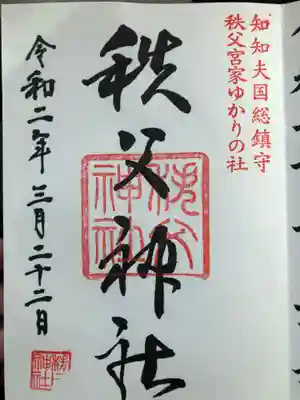 知知夫国総鎮守
秩父宮家ゆかりの社
秩父神社
秩父神社
令和二年三月二十二日